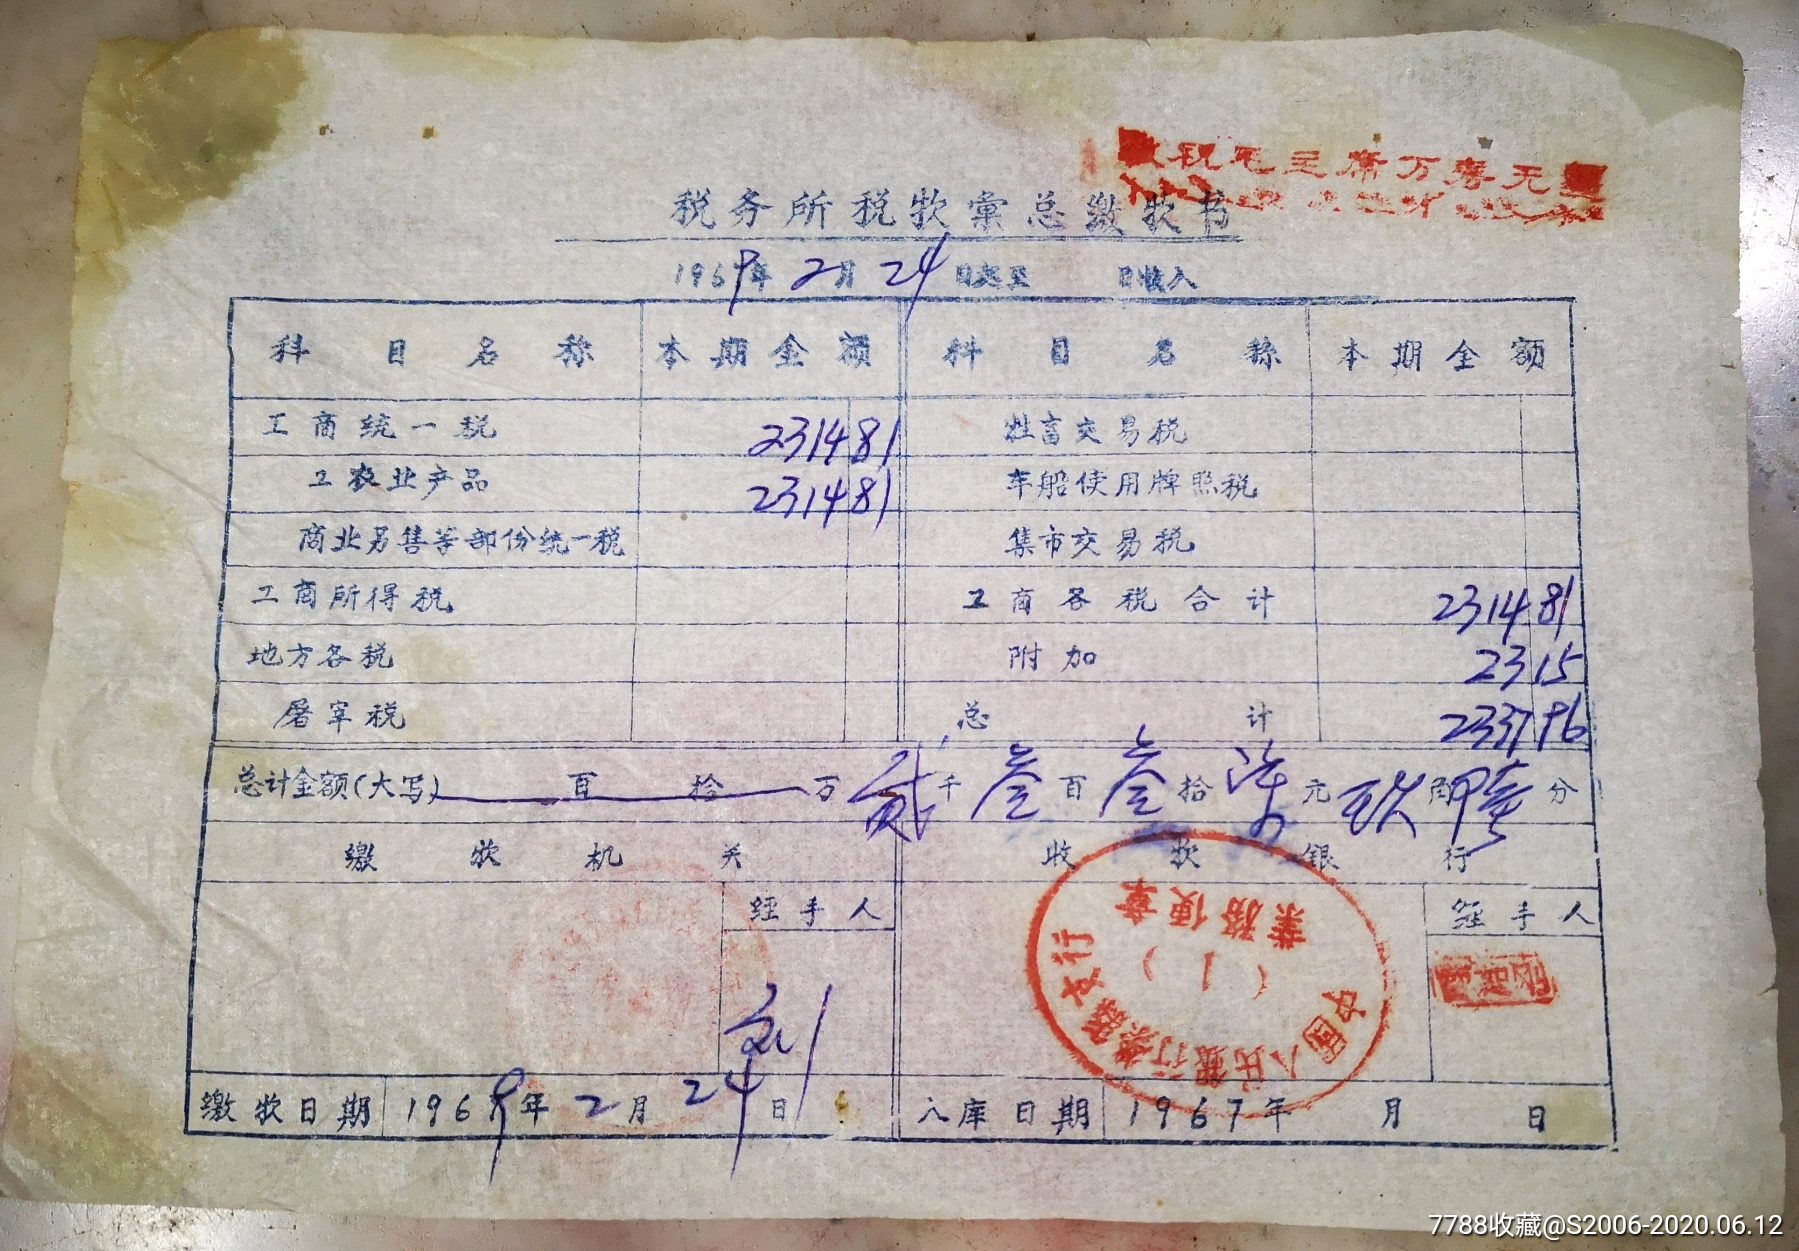 敬祝毛主席万寿无疆
税务所税款彙总缴款书
1969年2月24日起至 日收入
科目名称 本期金额 科目名称 本期金额
工商统一税 231481 牲畜交易税
工农业产品 231481 车船使用牌照税
商业另售等部份统一税 集市交易税
工商所得税 工商各税合计 231481
地方各税 附加 2315
屠宰税 总计 233796
总计金额(大写) 百 拾 万 贰千叁百叁拾柒元玖角 分
缴款机关 收款银行
经手人 经手人
中国人民银行 支行
(1)
业務便章
刘
缴款日期 1969年2月24日 入库日期 1967年 月 日
7788收藏@S2006-2020.06.12